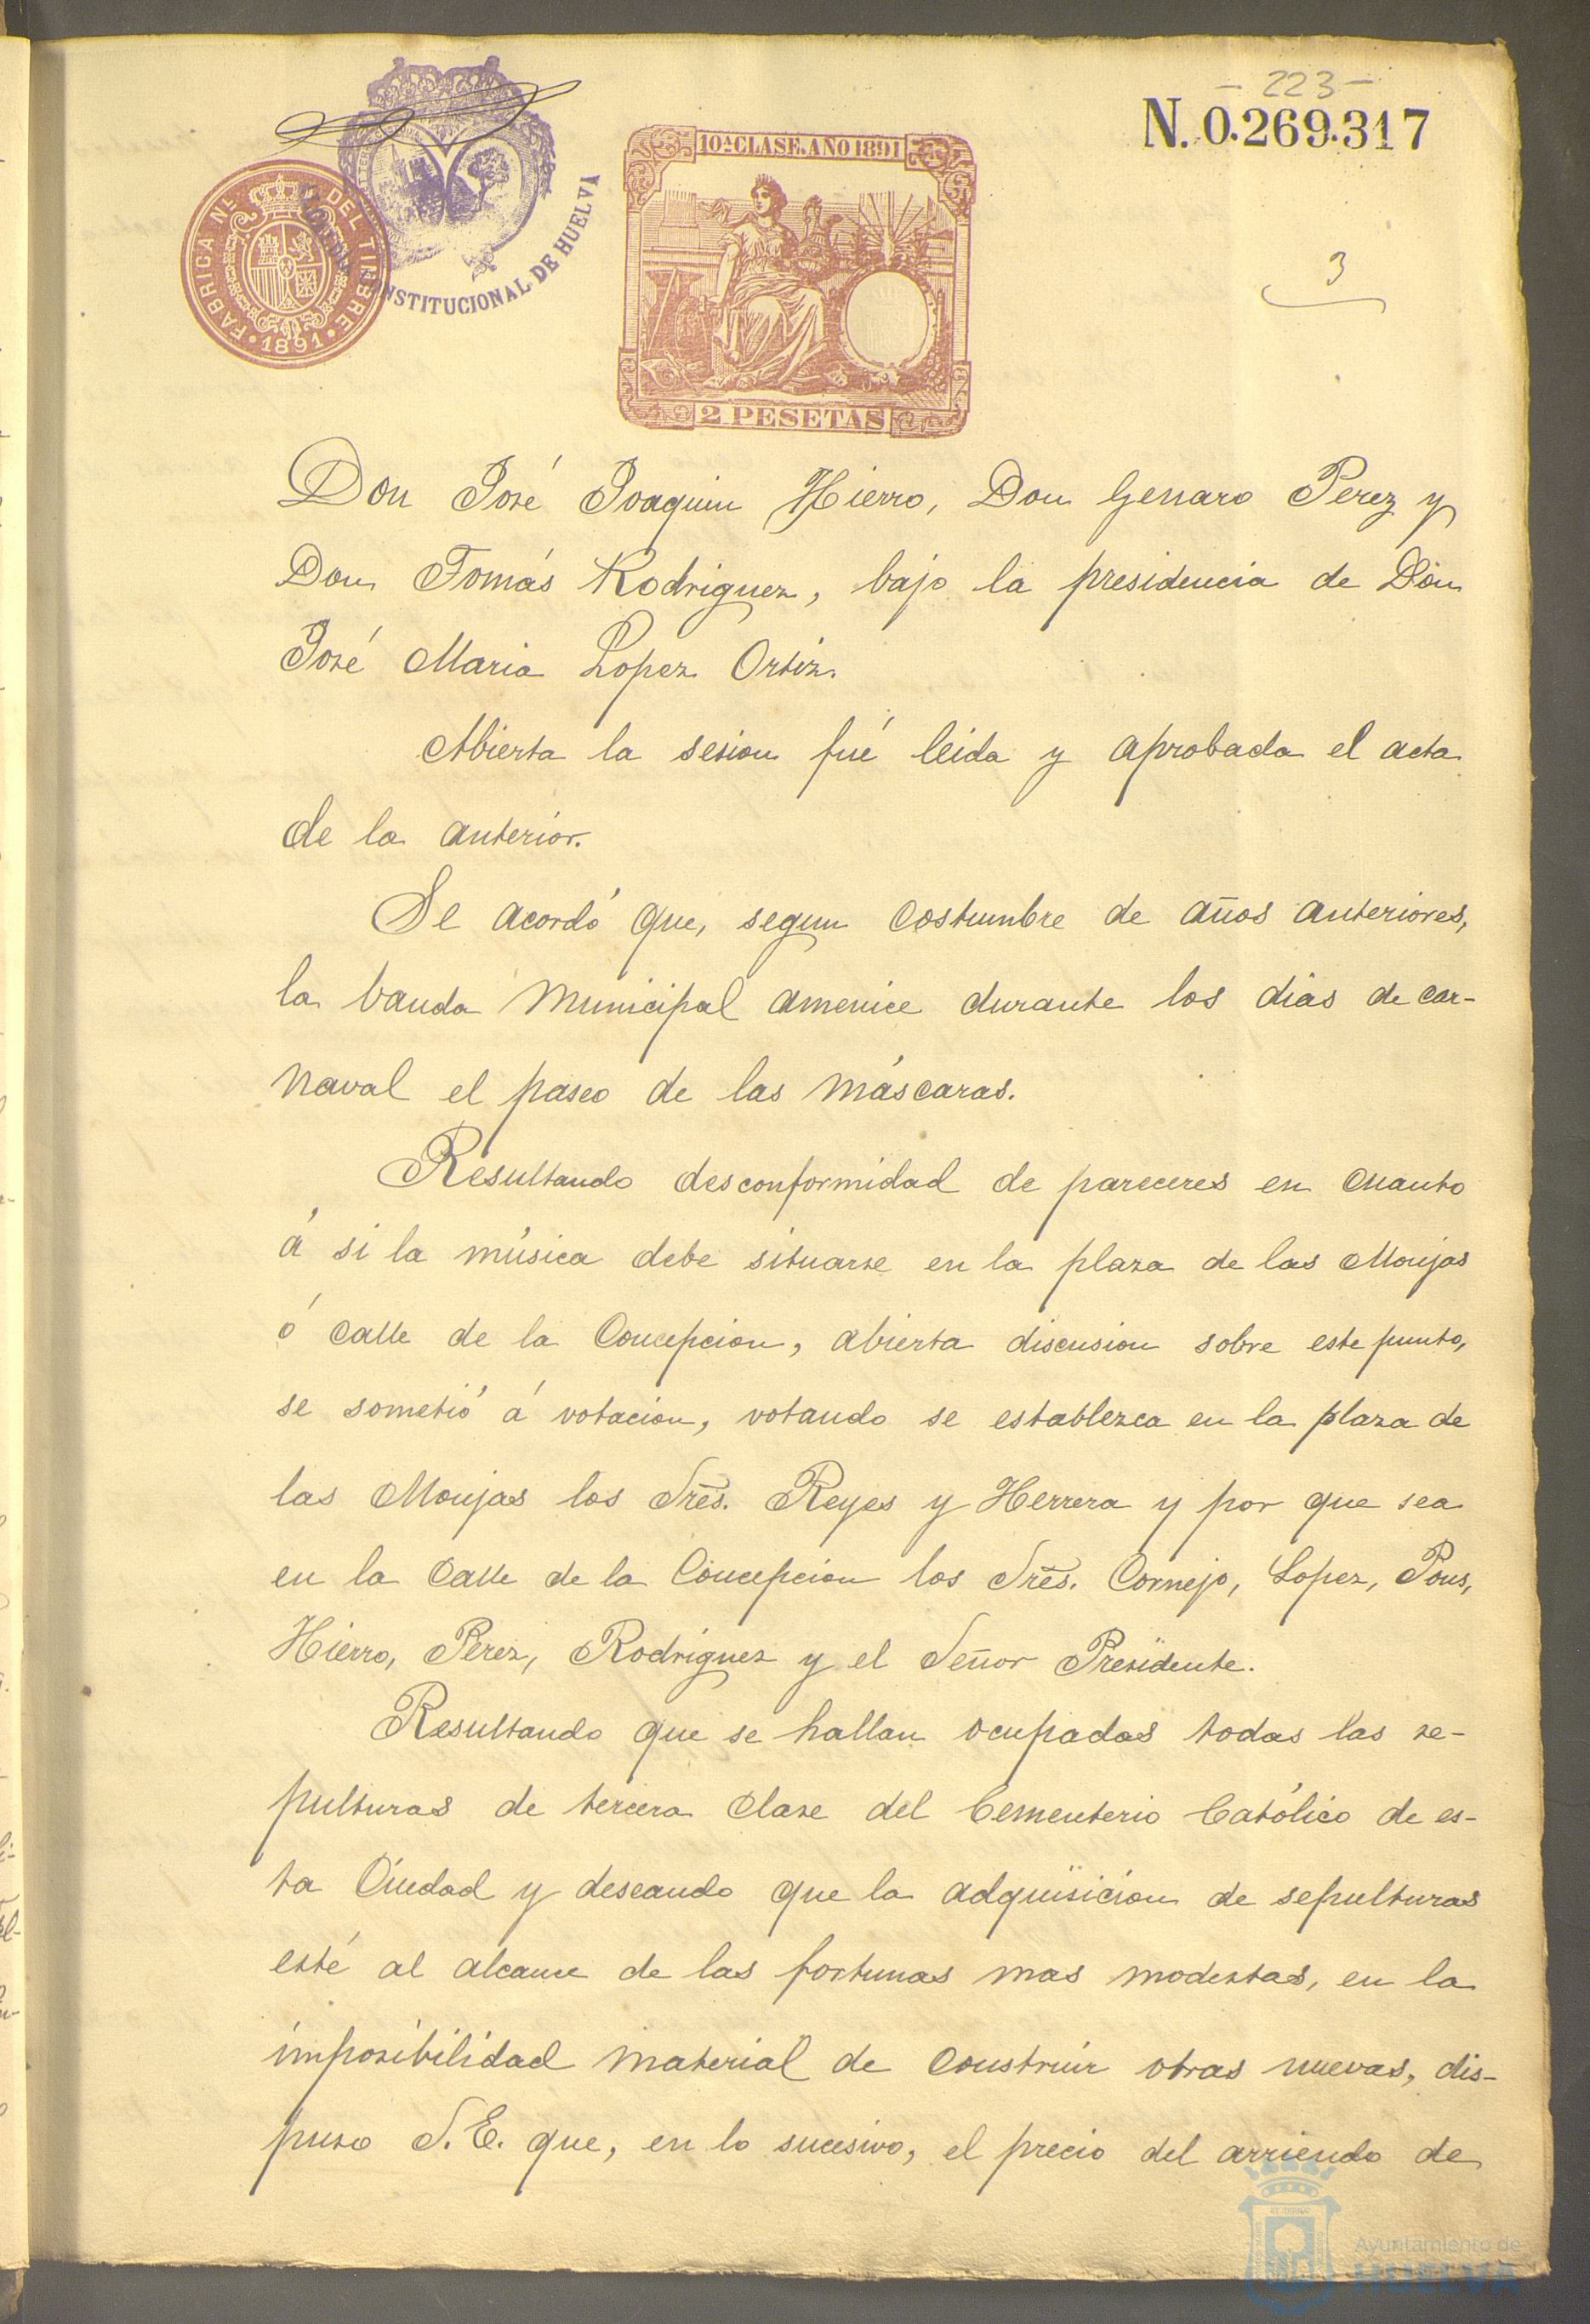 - 223 -
N. 0.269.317
10ª CLASE. AÑO 1891
FABRICA NL. DEL TIMBRE
1891
CONSTITUCIONAL DE HUELVA
2 PESETAS
3
Don José Joaquin Hierro, Don Genaro Perez y
Don Tomás Rodriguez, bajo la presidencia de Don
José Maria Lopez Ortiz.
Abierta la sesion fué leida y aprobada el acta
de la anterior.
Se acordó que, segun costumbre de años anteriores,
la banda Municipal amenice durante los dias de car-
naval el paseo de las máscaras.
Resultando desconformidad de pareceres en cuanto
á si la música debe situarse en la plaza de las Monjas
ó calle de la Concepcion, abierta discusion sobre este punto,
se sometió á votacion, votando se establezca en la plaza de
las Monjas los Sres. Reyes y Herrera y por que sea
en la calle de la Concepcion los Sres. Cornejo, Lopez, Pons,
Hierro, Perez, Rodriguez y el Señor Presidente.
Resultando que se hallan ocupadas todas las se-
pulturas de tercera clase del Cementerio Católico de es-
ta Ciudad y deseando que la adquisicion de sepulturas
esté al alcance de las fortunas mas modestas, en la
imposibilidad material de construir otras nuevas, dis-
puso S. E. que, en lo sucesivo, el precio del arriendo de
Ayuntamiento de
HUELVA